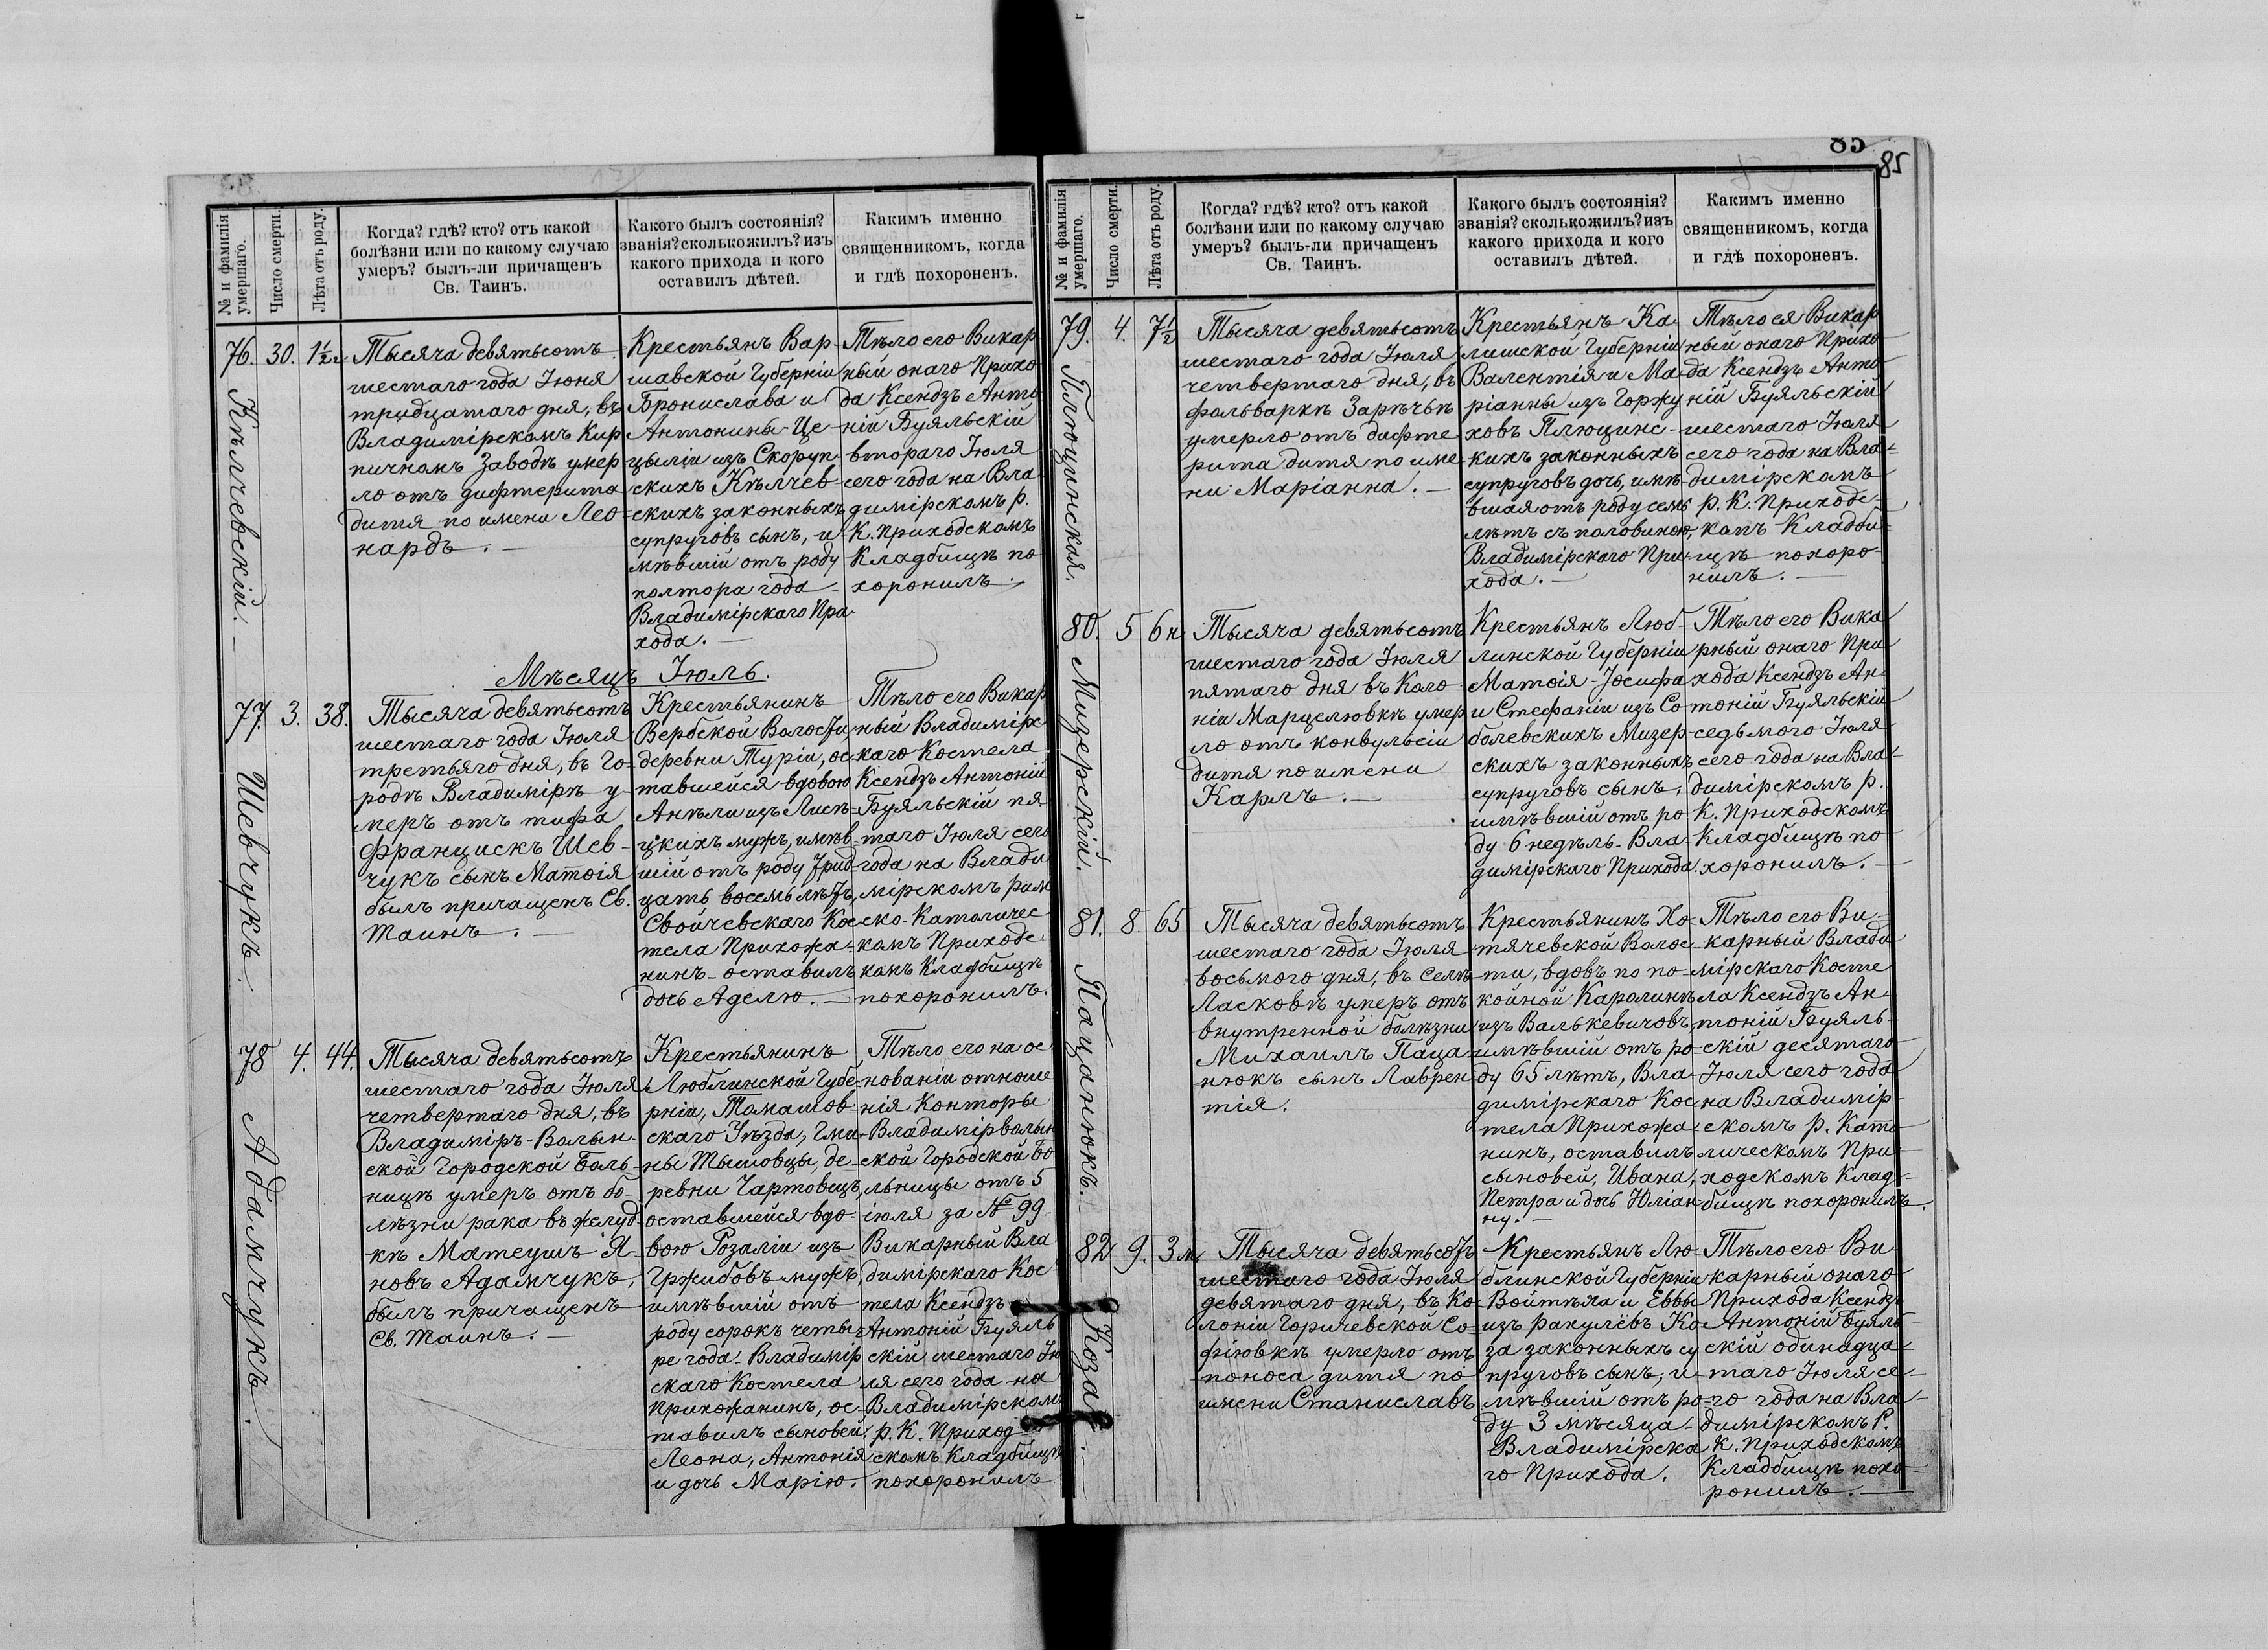 85
85
№ и фамилія умершаго.
Число смерти.
Лѣта отъ роду.
Когда? гдѣ? кто? отъ какой
болѣзни или по какому случаю
умеръ? былъ-ли причащенъ
Св. Таинъ.
Какого былъ состоянія?
званія? сколько жилъ? изъ
какого прихода и кого
оставилъ дѣтей.
Какимъ именно
священникомъ, когда
и гдѣ похороненъ.
76.
Кѣлчевскій.
30.
1½ г
Тысяча девятьсотъ
шестаго года Іюня
тридцатаго дня, въ
Владимірскомъ Кир
пичномъ Заводѣ умер
ло отъ дифтерита
дитя по имени Лео-
нардъ. —
Крестьянъ Вар-
шавской Губерніи
Бронислава и
Антонины-Це-
цыліи изъ Скоруп-
скихъ Кѣлчев-
скихъ законныхъ
супруговъ сынъ, и-
мѣвшій отъ роду
полтора года -
Владимірскаго При-
хода. —
Тѣло его Викар
ный онаго Прихо
да Ксендзъ Анто
ній Буяльскій
втораго Іюля
сего года на Вла-
димірскомъ р.
К. Приходскомъ
Кладбищѣ по
хоронилъ.
Мѣсяцъ Іюль.
77.
Шевчукъ.
3.
38.
Тысяча девятьсотъ
шестаго года Іюля
третьяго дня, въ Го-
родѣ Владимірѣ у-
меръ отъ тифа
Францискъ Шев-
чукъ сынъ Матѳія
былъ причащенъ Св.
Таинъ. —
Крестьянинъ
Вербской Волости,
деревни Туріи, ос-
тавшейся вдовою
Анѣли изъ Лисѣ-
цкихъ мужъ, имѣв-
шій отъ роду трид-
цать восемь лѣтъ,
Свойчевскаго Кос-
тела Прихожа-
нинъ - оставилъ
дочь Аделю. —
Тѣло его Викар
ный Владимірс
каго Костела
Ксендзъ Антоній
Буяльскій пя
таго Іюля сего
года на Влади
мірскомъ рим
ско-Католичес
комъ Приходс
комъ Кладбищѣ
похоронилъ.
78
Адамчукъ.
4.
44.
Тысяча девятьсотъ
шестаго года Іюля
четвертаго дня, въ
Владиміръ-Волын-
ской Городской Боль-
ницѣ умеръ отъ бо-
лѣзни рака въ желуд-
кѣ Матеушъ Я-
новъ Адамчукъ,
былъ причащенъ
Св. Таинъ. —
Крестьянинъ
Люблинской Губе-
рніи, Томашов-
скаго Уѣзда, Гми-
ны Тышовцы, де-
ревни Чартовецъ,
оставшейся вдо-
вою Розаліи изъ
Гржибовъ мужъ,
имѣвшій отъ
роду сорокъ четы-
ре года - Владимір
скаго Костела
Прихожанинъ, ос-
тавилъ сыновей:
Леона, Антонія
и дочь Марію.
Тѣло его на ос
нованіи отноше
нія Конторы
Владимірволын
ской Городской Бо
льницы отъ 5
іюля за № 99
Викарный Вла
димірскаго Кос
тела Ксендзъ
Антоній Буяль
скій шестаго Ію
ля сего года на
Владимірскомъ
р. К. Приход
скомъ Кладбищѣ
похоронилъ
№ и фамилія умершаго.
Число смерти.
Лѣта отъ роду.
Когда? гдѣ? кто? отъ какой
болѣзни или по какому случаю
умеръ? былъ-ли причащенъ
Св. Таинъ.
Какого былъ состоянія?
званія? сколько жилъ? изъ
какого прихода и кого
оставилъ дѣтей.
Какимъ именно
священникомъ, когда
и гдѣ похороненъ.
79.
Плюцинская.
4.
7½
Тысяча девятьсотъ
шестаго года Іюля
четвертаго дня, въ
фольваркѣ Зарѣчьѣ
умерло отъ дифте
рита дитя по име
ни Маріанна. —
Крестьянъ Ка-
лишской Губерніи
Валентія и Ма-
ріанны изъ Горжу
ховъ Плюцинс-
кихъ законныхъ
супруговъ дочь, имѣ-
вшая отъ роду семь
лѣтъ съ половиною,
Владимірскаго При-
хода. —
Тѣло ея Викар
ный онаго Прихо
да Ксендзъ Анто
ній Буяльскій
шестаго Іюля
сего года на Вла-
димірскомъ
р. К. Приходс-
комъ Кладби-
щѣ похоро-
нилъ. —
80.
Мизерскій.
5
6 н.
Тысяча девятьсотъ
шестаго года Іюля
пятаго дня въ Коло
ніи Марцелювкѣ умер
ло отъ конвульсіи
дитя по имени
Карлъ. —
Крестьянъ Люб-
линской Губерніи
Матѳія-Іосифа
и Стефаніи изъ Со
болевскихъ Мизер-
скихъ законныхъ
супруговъ сынъ,
имѣвшій отъ ро
ду 6 недѣль - Вла-
димірскаго Прихода.
Тѣло его Вика
рный онаго При
хода Ксендзъ Ан-
тоній Буяльскій
седьмого Іюля
сего года на Вла-
димірскомъ р.
К. Приходскомъ
Кладбищѣ по
хоронилъ. —
81.
Пацанюкъ.
8.
65
Тысяча девятьсотъ
шестаго года Іюля
восьмого дня, въ Селѣ
Ласковѣ умеръ отъ
внутренной болѣзни
Михаилъ Паца-
нюкъ сынъ Лаврен
тія.
Крестьянинъ Хо-
тячевской Волос-
ти, вдовъ по по-
койной Каролинѣ
изъ Валькевичовъ,
имѣвшій отъ ро-
ду 65 лѣтъ, Вла-
димірскаго Кос
тела Прихожа-
нинъ, оставилъ
сыновей, Ивана,
Петра и дочь Юліан-
ну. —
Тѣло его Ви-
карный Влади
мірскаго Косте
ла Ксендзъ Ан-
тоній Буяль-
скій десятаго
Іюля сего года
на Владимір-
скомъ р. Като
лическомъ При-
ходскомъ Клад-
бищѣ похоронилъ.
82
Коза.
9.
3 м
Тысяча девятьсотъ
шестаго года Іюля
девятаго дня, въ Ко-
лоніи Горичевской Со-
фіювкѣ умерло отъ
поноса дитя по
имени Станиславъ
Крестьянъ Лю-
блинской Губерніи
Войтѣха и Еввы
изъ Ракулёвъ Ко-
за законныхъ су
пруговъ сынъ, и-
мѣвшій отъ ро-
ду 3 мѣсяца -
Владимірска
го Прихода.
Тѣло его Ви
карный онаго
Прихода Ксендзъ
Антоній Буяль-
скій одинадца-
таго Іюля се-
го года на Вла-
димірскомъ Р.
К. Приходскомъ
Кладбищѣ похо-
ронилъ. —